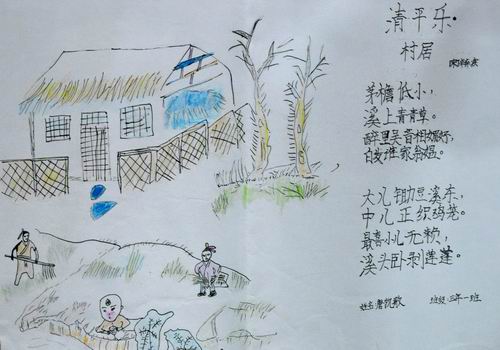 清平乐·
村居
茅檐低小，
溪上青青草。
醉里吴音相媚好，
白发谁家翁媪。
大儿锄豆溪东，
中儿正织鸡笼。
最喜小儿无赖，
溪头卧剥莲蓬。
姓名 班级 三年一班